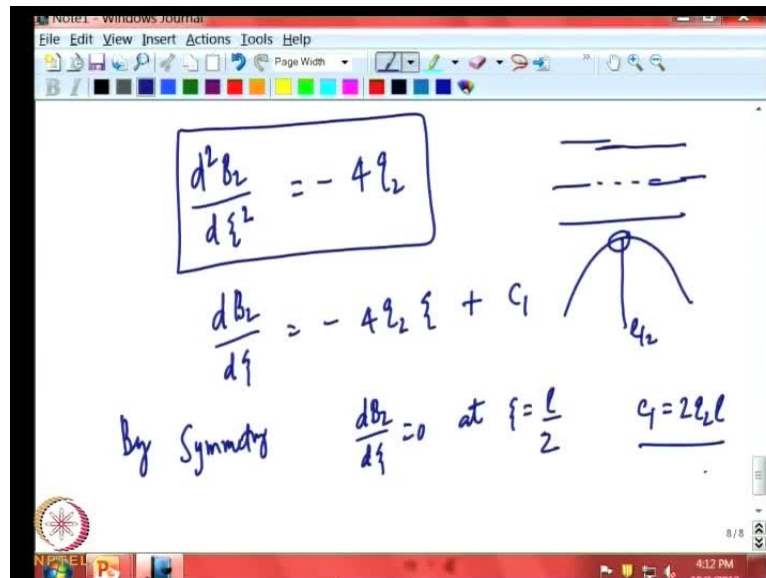 Note1 - Windows Journal
File Edit View Insert Actions Tools Help
Page Width
B I
d²B₂/dξ² = - 4q₂
dB₂/dξ = - 4q₂ ξ + C₁
l/2
By Symmetry dB₂/dξ = 0 at ξ = l/2 C₁ = 2q₂l
8/8
NPTEL
4:12 PM